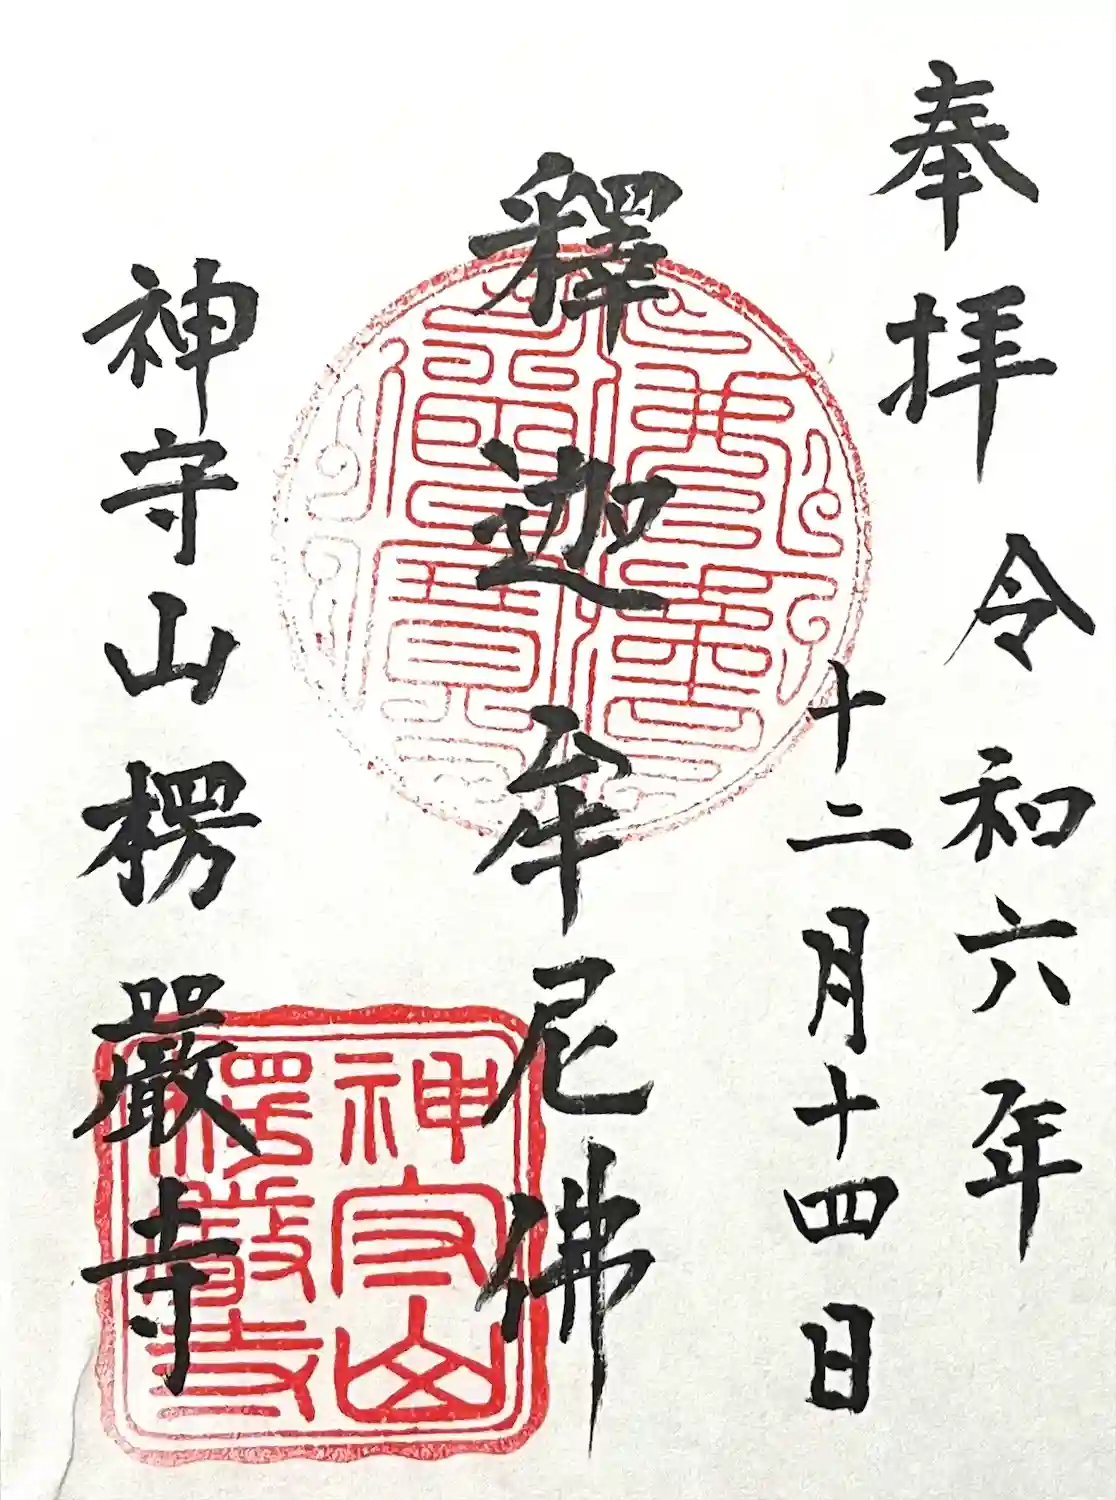 奉拝
令和六年
十二月十四日
釋迦牟尼佛
神守山楞嚴寺
神守山
楞嚴寺
佛法僧寶